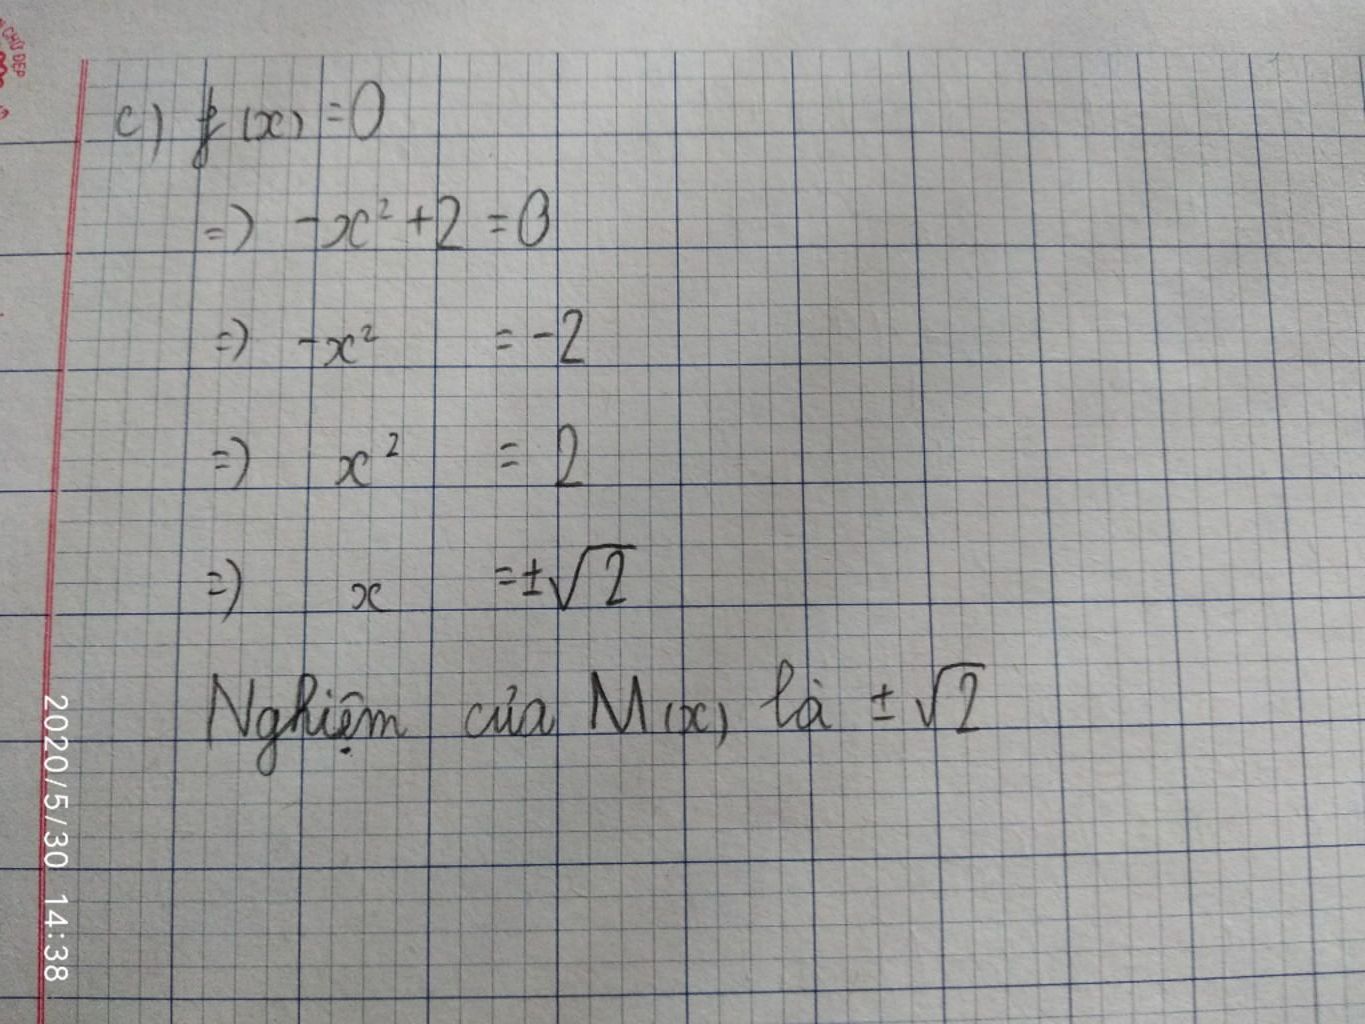 CHỮ ĐẸP
c) f(x) = 0
=) -x² + 2 = 0
=) -x² = -2
=) x² = 2
=) x = ±√2
Nghiệm của M(x) là ±√2
2020/5/30 14:38